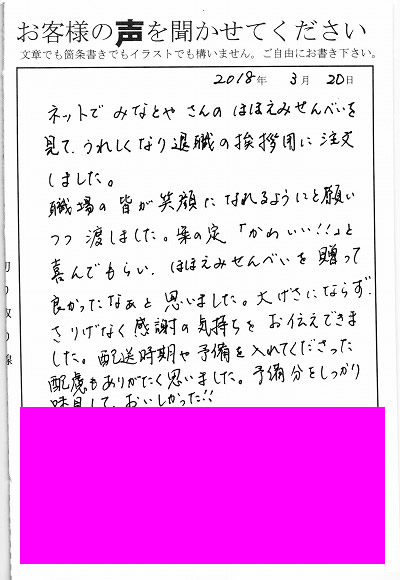 お客様の声を聞かせてください
文章でも箇条書きでもイラストでも構いません。ご自由にお書き下さい。
2018年 3月 20日
ネットで みなとや さんの ほほえみせんべいを
見て、うれしくなり退職の挨拶用に注文
しました。
職場の皆が笑顔になれるようにと願い
つつ渡しました。案の定「かわいい!!」と
喜んでもらい、ほほえみせんべいを贈って
良かったなぁと思いました。大げさにならず、
さりげなく感謝の気持ちを お伝えできま
した。配送時期や予備を入れてくださった
配慮もありがたく思いました。予備分をしっかり
味見して、おいしかった!!
切り取り線